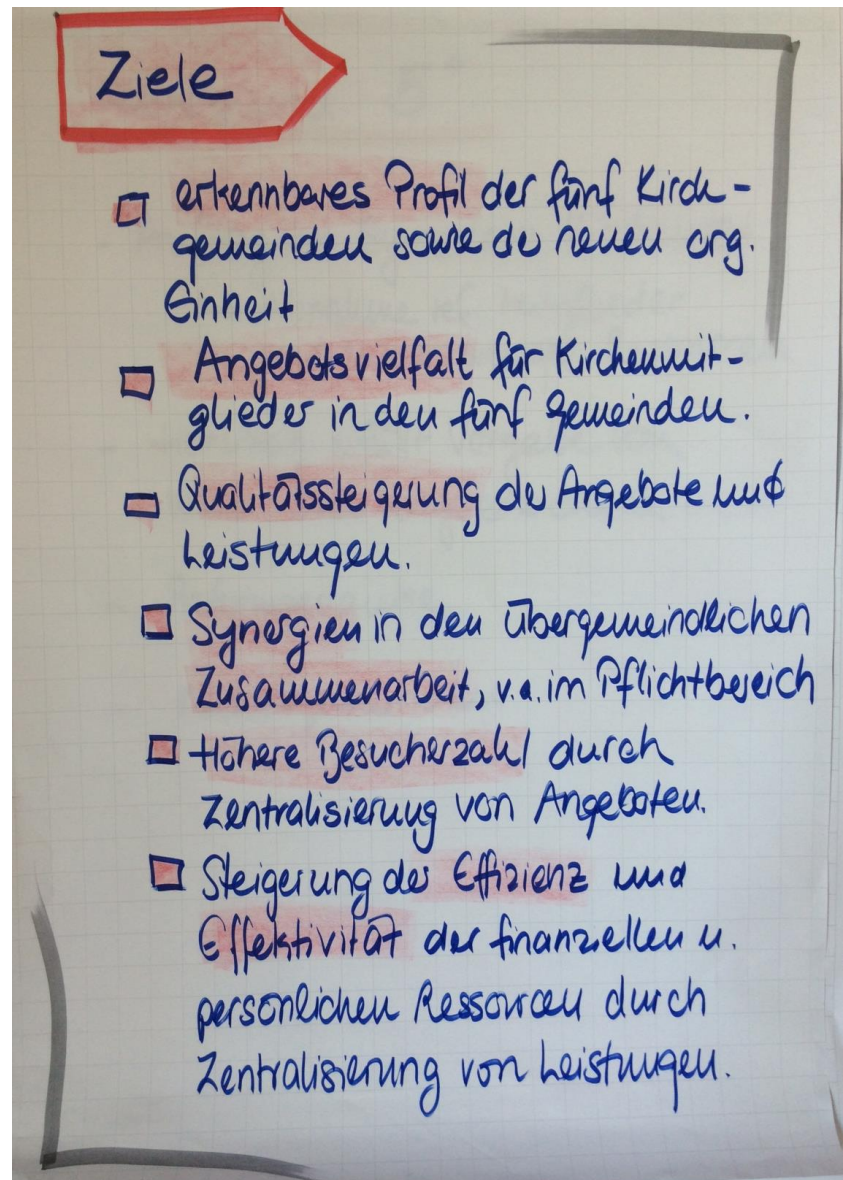 Ziele
erkennbares Profil der fünf Kirch-
gemeinden sowie der neuen org.
Einheit
Angebotsvielfalt für Kirchenmit-
glieder in den fünf Gemeinden.
Qualitätssteigerung der Angebote und
Leistungen.
Synergien in den übergemeindlichen
Zusammenarbeit, v.a. im Pflichtbereich
Höhere Besucherzahl durch
Zentralisierung von Angeboten.
Steigerung der Effizienz und
Effektivität der finanziellen u.
persönlichen Ressourcen durch
Zentralisierung von Leistungen.